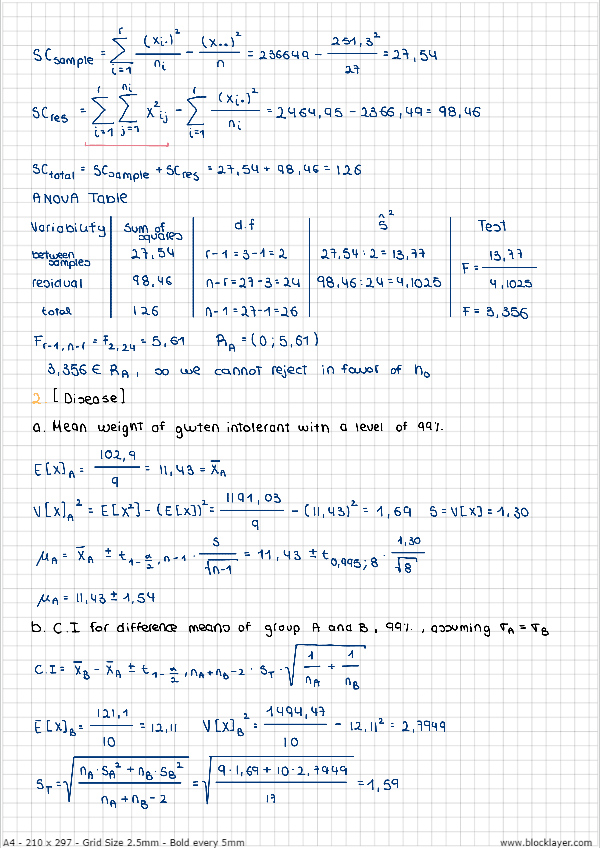 SCsample = Σ_{i=1}^{r} (x_i.)² / n_i − (x..)² / n = 236649 − 251,3² / 27 = 27,54
SCres = Σ_{i=1}^{r} Σ_{j=1}^{n_i} x²_ij − Σ_{i=1}^{r} (x_i.)² / n_i = 2464,95 − 2366,49 = 98,46
SCtotal = SCsample + SCres = 27,54 + 98,46 = 126
ANOVA Table
Variability | Sum of squares | d.f | ŝ² | Test
between samples | 27,54 | r−1=3−1=2 | 27,54:2=13,77 | F = 13,77 / 4,1025
residual | 98,46 | n−r=27−3=24 | 98,46:24=4,1025
total | 126 | n−1=27−1=26 | F = 3,356
F_{r−1,n−r} = F_{2,24} = 5,61 RA = (0; 5,61)
3,356 ∈ RA, so we cannot reject in favor of h₀
2. [Disease]
a. Mean weight of gluten intolerant with a level of 99%.
E[X]_A = 102,9 / 9 = 11,43 = x̄_A
V[X]_A² = E[X²] − (E[X])² = 1191,03 / 9 − (11,43)² = 1,69 S = V[X] = 1,30
μ_A = x̄_A ± t_{1−α/2, n−1} · S / √(n−1) = 11,43 ± t_{0,995;8} · 1,30 / √8
μ_A = 11,43 ± 1,54
b. C.I for difference means of group A and B, 99%, assuming σ_A = σ_B
C.I = x̄_B − x̄_A ± t_{1−α/2, n_A+n_B−2} · S_T · √(1 / n_A + 1 / n_B)
E[X]_B = 121,1 / 10 = 12,11 V[X]_B² = 1494,47 / 10 − 12,11² = 2,7949
S_T = √((n_A · S_A² + n_B · S_B²) / (n_A + n_B − 2)) = √((9 · 1,69 + 10 · 2,7949) / 17) = 1,59
A4 - 210 x 297 - Grid Size 2.5mm - Bold every 5mm
www.blocklayer.com